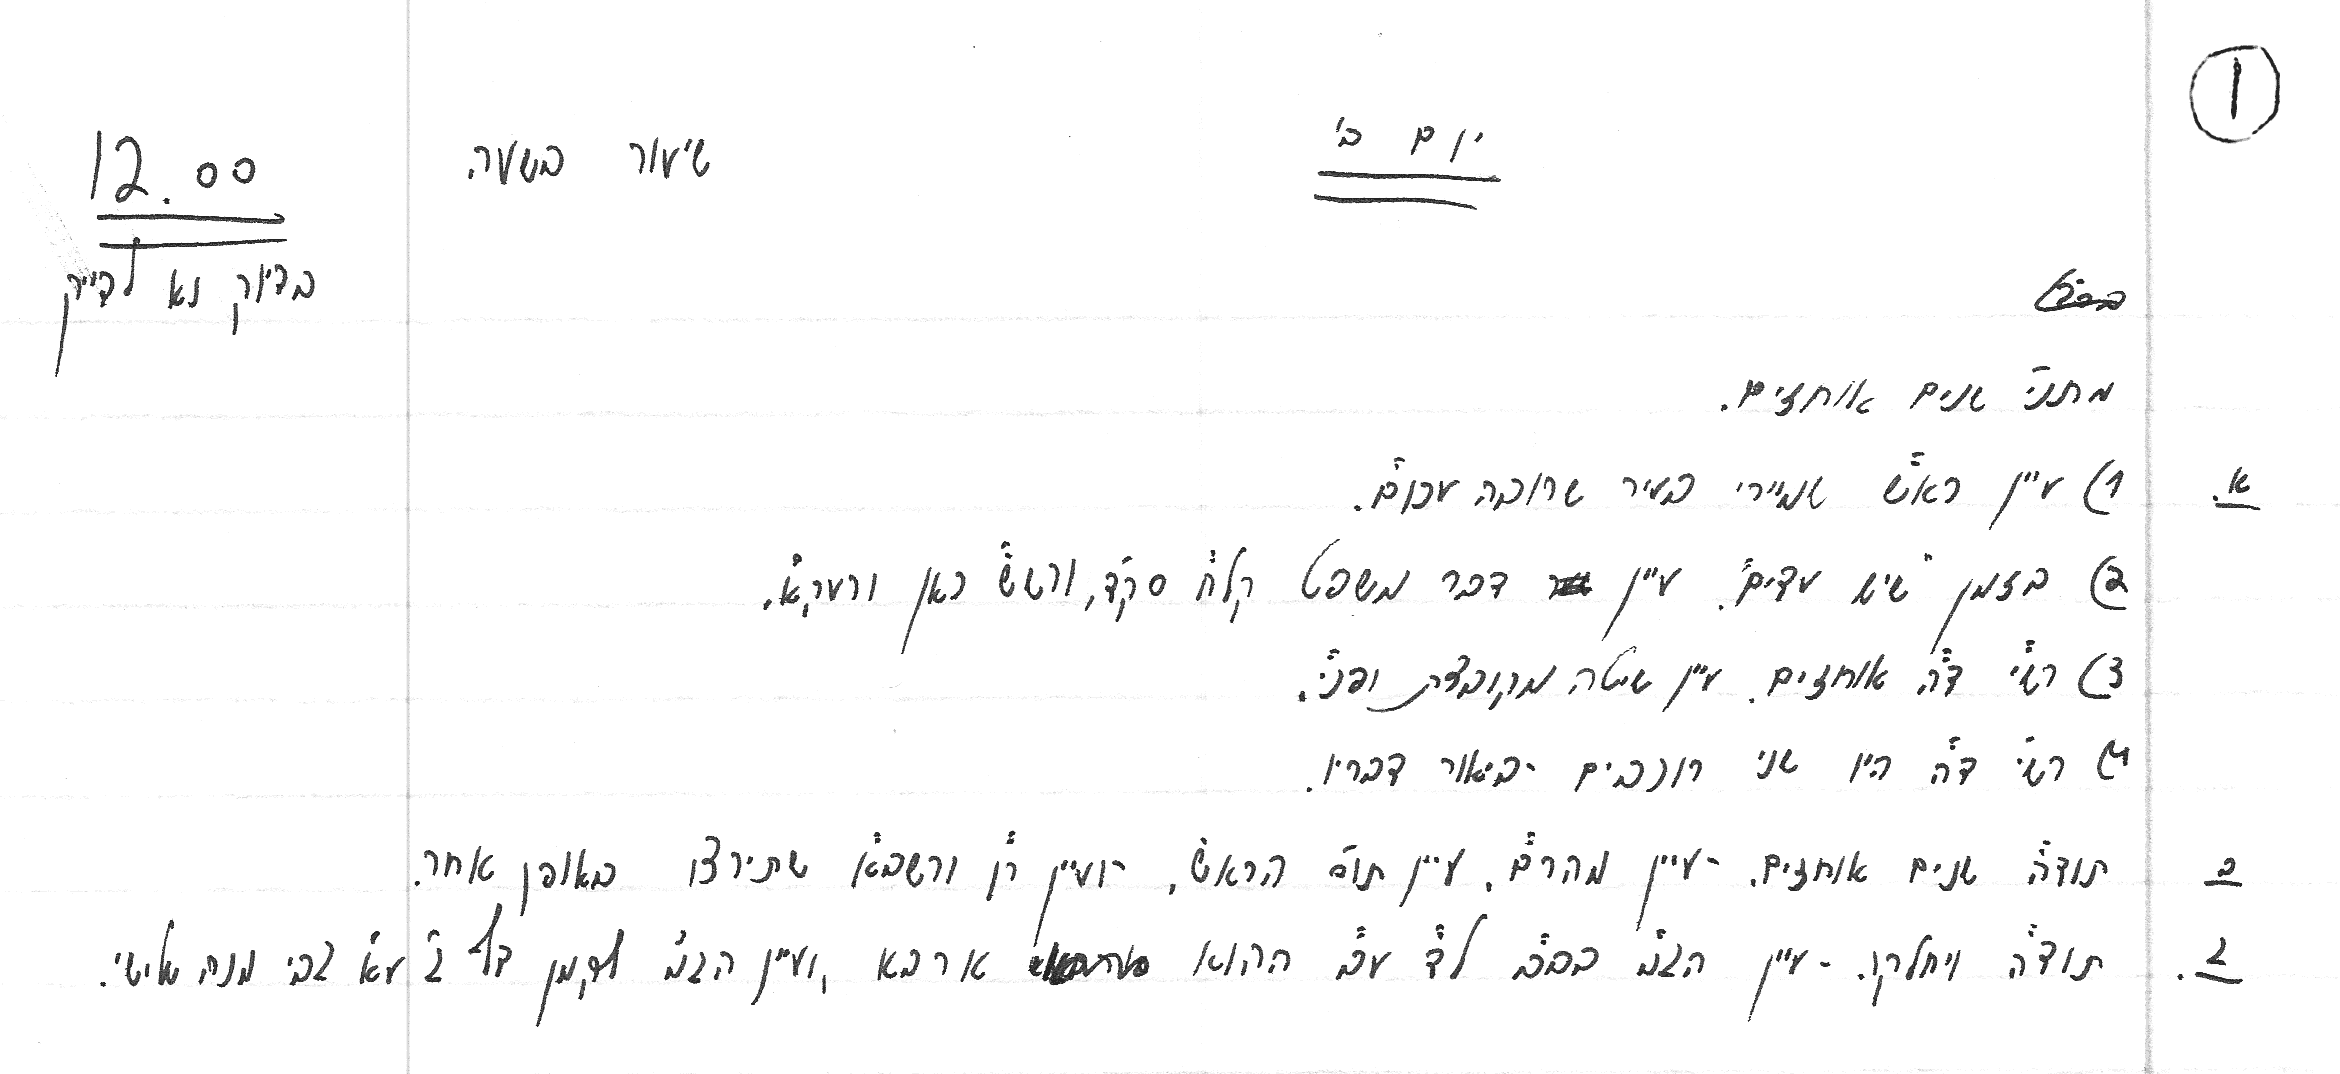 1
יום ב'
שיעור בשעה
12.00
בדיוק נא לדייק
מתני' שנים אוחזים.
א. 1) עיין רא"ש שמיירי בעיר שרובה עכום.
2) בזמן "שיש עדים". עיין דבר משפט קל"ח סק"ד, ורש"ש כאן ורעק"א.
3) רש"י ד"ה אוחזים. עיין שיטה מקובצת ופנ"י.
4) רש"י ד"ה היו שני רוכבים - ביאור דבריו.
ב תוד"ה שנים אוחזים. - עיין מהר"ם, עיין תוס' הרא"ש, - ועיין ר"ן ורשב"א שתירצו באופן אחר.
ג. תוד"ה ויחלקו. - עיין הגמ' בב"ב ל"ד ע"ב ההוא ארבא, ועיין הגמ' לקמן דף ג' ע"א גבי מנה שלישי.